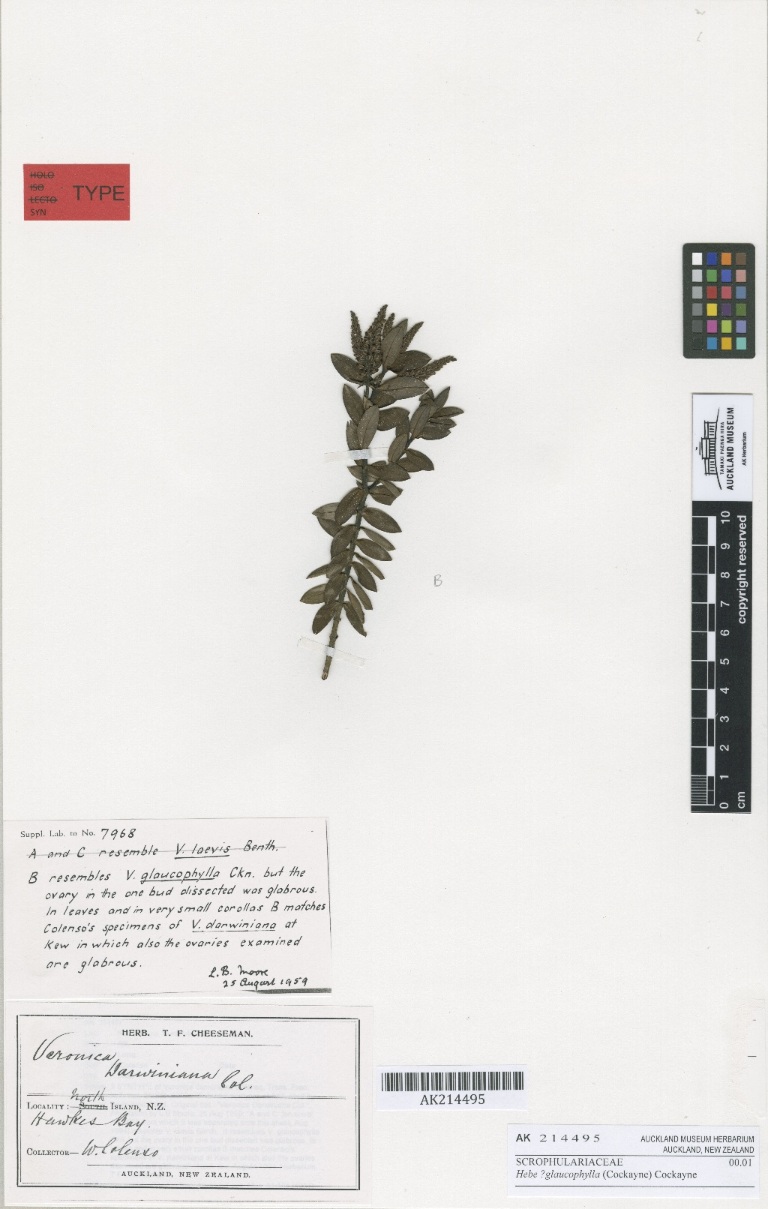 HOLO
ISO
LECTO
SYN
TYPE
B
TAMAKI PAENGA HIRA
AUCKLAND MUSEUM
AK Herbarium
copyright reserved
10
9
8
7
6
5
4
3
2
1
0
cm
Suppl. Lab. to No. 7968
A and C resemble V. laevis Benth.
B resembles V. glaucophylla Ckn. but the
ovary in the one bud dissected was glabrous.
In leaves and in very small corollas B matches
Colenso's specimens of V. darwiniana at
Kew in which also the ovaries examined
are glabrous.
L.B. Moore
25 August 1959
HERB. T. F. CHEESEMAN.
Veronica
Darwiniana Col.
North
LOCALITY:—South Island, N.Z.
Hawkes Bay.
COLLECTOR—W. Colenso
AUCKLAND, NEW ZEALAND.
AK214495
AK 214495 AUCKLAND MUSEUM HERBARIUM
AUCKLAND, NEW ZEALAND
SCROPHULARIACEAE 00.01
Hebe ?glaucophylla (Cockayne) Cockayne